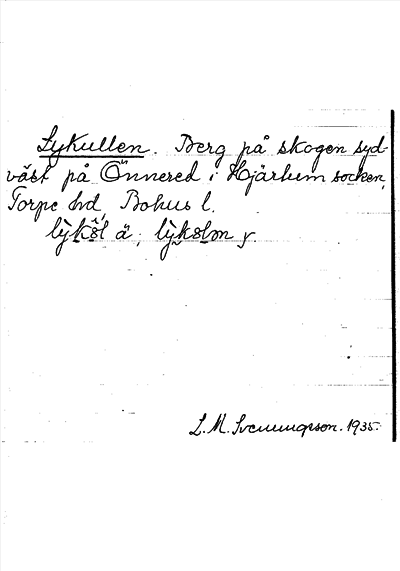 Lykullen. Berg på skogen syd-
väst på Önnered i Hjärtum socken,
Torpe hd, Bohus l.
L. M. Svenungsson. 1935.